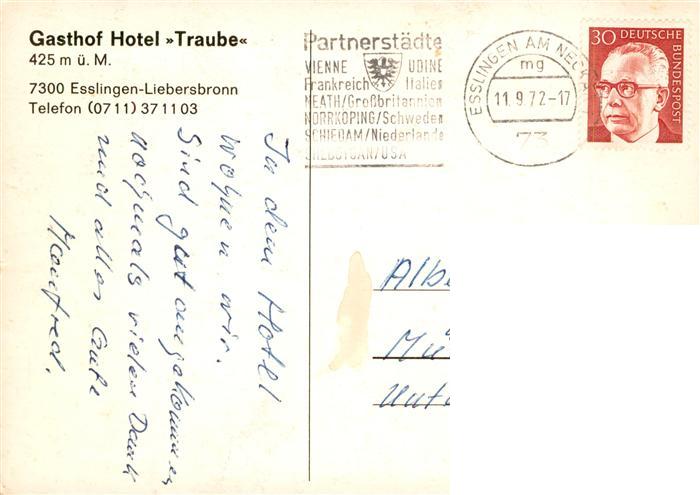 Gasthof Hotel »Traube«
425 m ü. M.
7300 Esslingen-Liebersbronn
Telefon (0711) 371103
Partnerstädte
VIENNE UDINE
Frankreich Italien
NEATH/Großbritannien
NORRKÖPING/Schweden
SCHIEDAM/Niederlande
SHEBOYGAN/USA
ESSLINGEN AM NECKAR
mg
11.9.72-17
73
30 DEUTSCHE BUNDESPOST
In dem Hotel
wohnen wir.
Sind gut angekommen
nochmals vielen Dank
und alles Gute
Manfred.
Albe
Mü
Unte